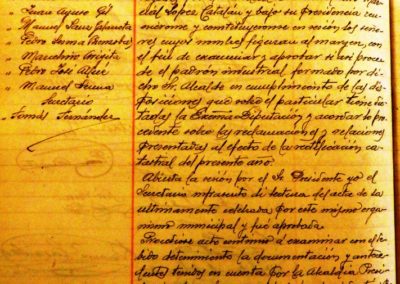 " Juan Ayuso Gil
" Manuel Sanz
" Pedro Serna
" Marcelino Urgita
" Pedro José
" Manuel Serna
Secretario
Tomás Fernández
del Lopez Catalán y bajo su Presidencia
reunieron y constituyeronse en sesión los seño
res cuyos nombres figuran al margen, con
el fin de examinar y aprobar si así proce
de el padrón industrial formado por di
cho Sr. Alcalde en cumplimiento de las dis
posiciones que sobre el particular tiene dic
tadas la Excma Diputación y acordar lo pro
cedente sobre las reclamaciones y relaciones
presentadas al efecto de la rectificación ca
tastral del presente año.
Abierta la sesión por el Sr. Presidente yo el
Secretario infrascrito di lectura del acta de la
ultimamente celebrada por este mismo orga
nismo municipal y fué aprobada.
Procedióse acto continuo a examinar con el de
bido detenimiento la documentación y antece
dentes tenidos en cuenta por la Alcaldia Presi